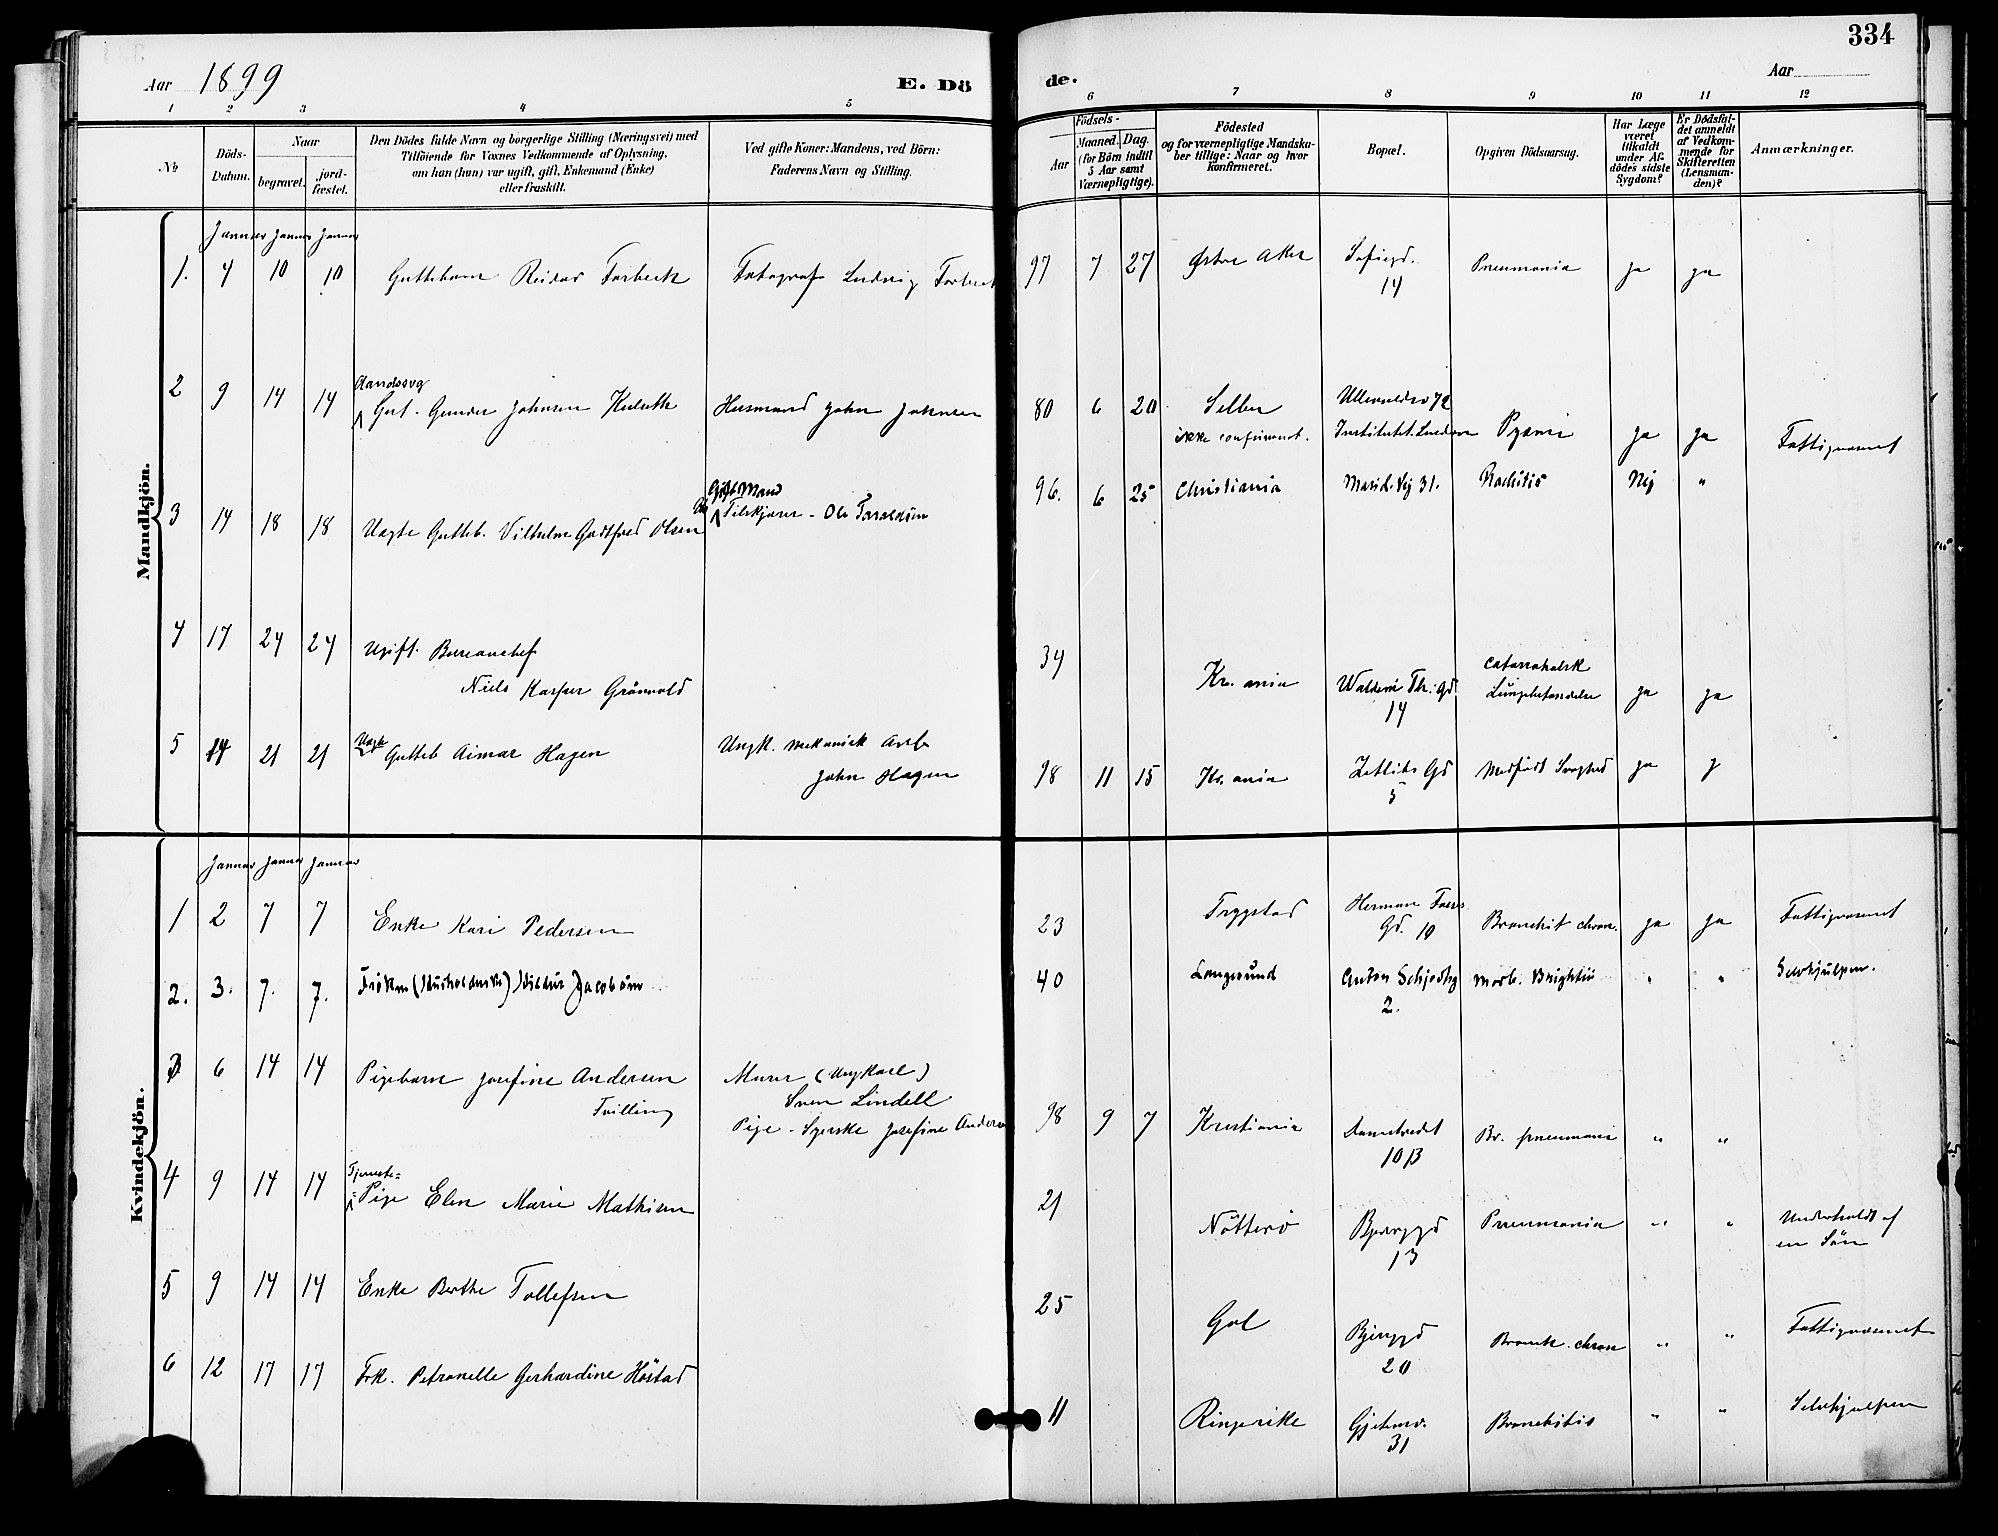 334
Aar 1899
E. Dö
de.
Aar
1 2 3 4 5 6 7 8 9 10 11 12
No
Döds-
Datum.
Naar
begravet.
jord-
fæstet.
Den Dödes fulde Navn og borgerlige Stilling (Næringsvei) med
Tilföiende for Voxnes Vedkommende af Oplysning,
om han (hun) var ugift, gift, Enkemand (Enke)
eller fraskilt.
Ved gifte Koner: Mandens, ved Börn:
Faderens Navn og Stilling.
Födsels-
Aar
Maaned. Dag.
(for Börn indtil
5 Aar samt
Værnepligtige).
Födested
og for værnepligtige Mandska-
ber tillige: Naar og hvor
konfirmeret.
Bopæl.
Opgiven Dödsaarsag.
Har Læge
været
tilkaldt
under Af-
dödes sidste
Sygdom?
Er Dödsfal-
det anmeldt
af Vedkom-
mende for
Skifteretten
(Lensman-
den)?
Anmærkninger.
Mandkjön.
Januar Januar Januar
1. 4 10 10 Guttebarn Reidar Forbech Fotograf Ludvig Forbech 97 7 27 Østre Aker Sofiegd. 14 Pneumonia ja ja
2 9 14 14 Aandssvg Gut. Gunder Johnsen Husmand John Johnsen 80 6 20 Selbu ikke confirmeret. Ullevoldsv 72 Institutet Pyæmi ja ja Fattigvæsnet
3 14 18 18 Uægte Gutteb. Vilhelm Godtfred Olsen Gift Mand Ole Taraldsen 96. 6 25 Christiania Marid. Vej 31. Rachitis Nej "
4 17 24 24 Ugift. Bureauchef
Niels Kasper Grönvold 34 Kr. ania Waldem Thr. Gd 14 catarrhalsk Lungebetændelse ja ja
5 14 21 21 Uægte Gutteb Aimar Hagen Ungk. mekanisk Arb
John Hagen 98 11 15 Kr. ania Zetlitz Gd 5 Medfødt Svaghed ja j
Kvindekjön.
Januar Januar Januar
1 2 7 7 Enke Kari Pedersen 23 Trygstad Herman Foss Gd. 10 Bronchit chron. ja ja Fattigvæsnet
2. 3. 7. 7. Frøken (Husholderske) Hildur Jacobsen 40 Langesund Anton Schjødtsg 2. Morb. Brightii " " Selvhjulpen.
3 6 14 14 Pigebarn Josefine Andersen
Tvilling Murer (Ungkarl)
Sven Lindell
Pige - Syerske Josefine Andersen 98 9 7 Kristiania 10 13 Br. pneumoni " "
4 9 14 14 Tjeneste=
=Pige Elen Marie Mathisen 21 Nøtterö Bjerggd 13 Pneumonia " " Underholdt af
en Sön
5 9 14 14 Enke Berthe Tollefsen 25 Gol Bjerggd 20 Bronch. chron " " Fattigvæsnet
6 12 17 17 Frk. Petronelle Gerhardine Höstad 11 Ringerike Gjetemv. 31 Bronchitis " " Selvhjulpen